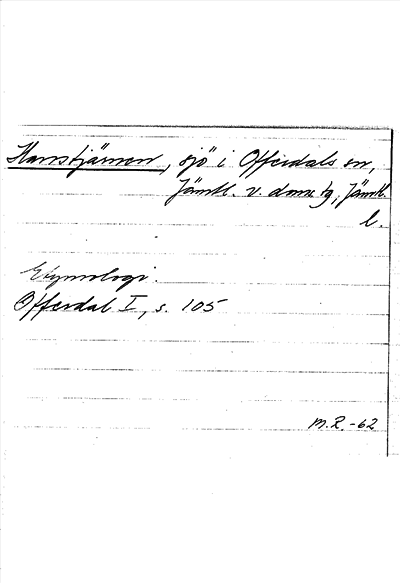 Hanstjärnen, sjö i Offerdals sn,
Jämtl. v. doms tg, Jämtl.
l.
Etymologi.
Offerdal I, s. 105
M.R.-62